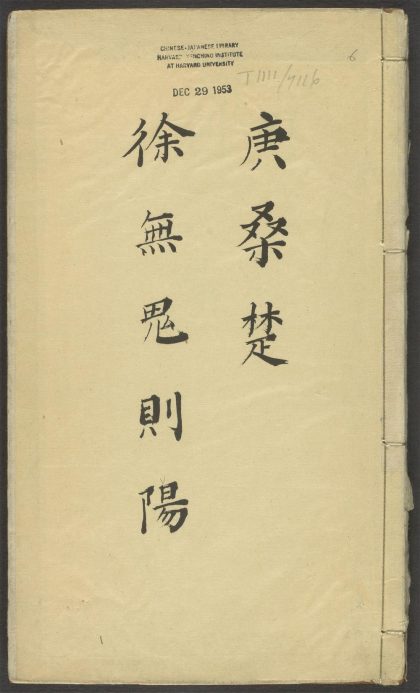 CHINESE-JAPANESE LIBRARY
HARVARD-YENCHING INSTITUTE
AT HARVARD UNIVERSITY
DEC 29 1953
6
T 1111/7116
庚桑楚
徐無鬼則陽